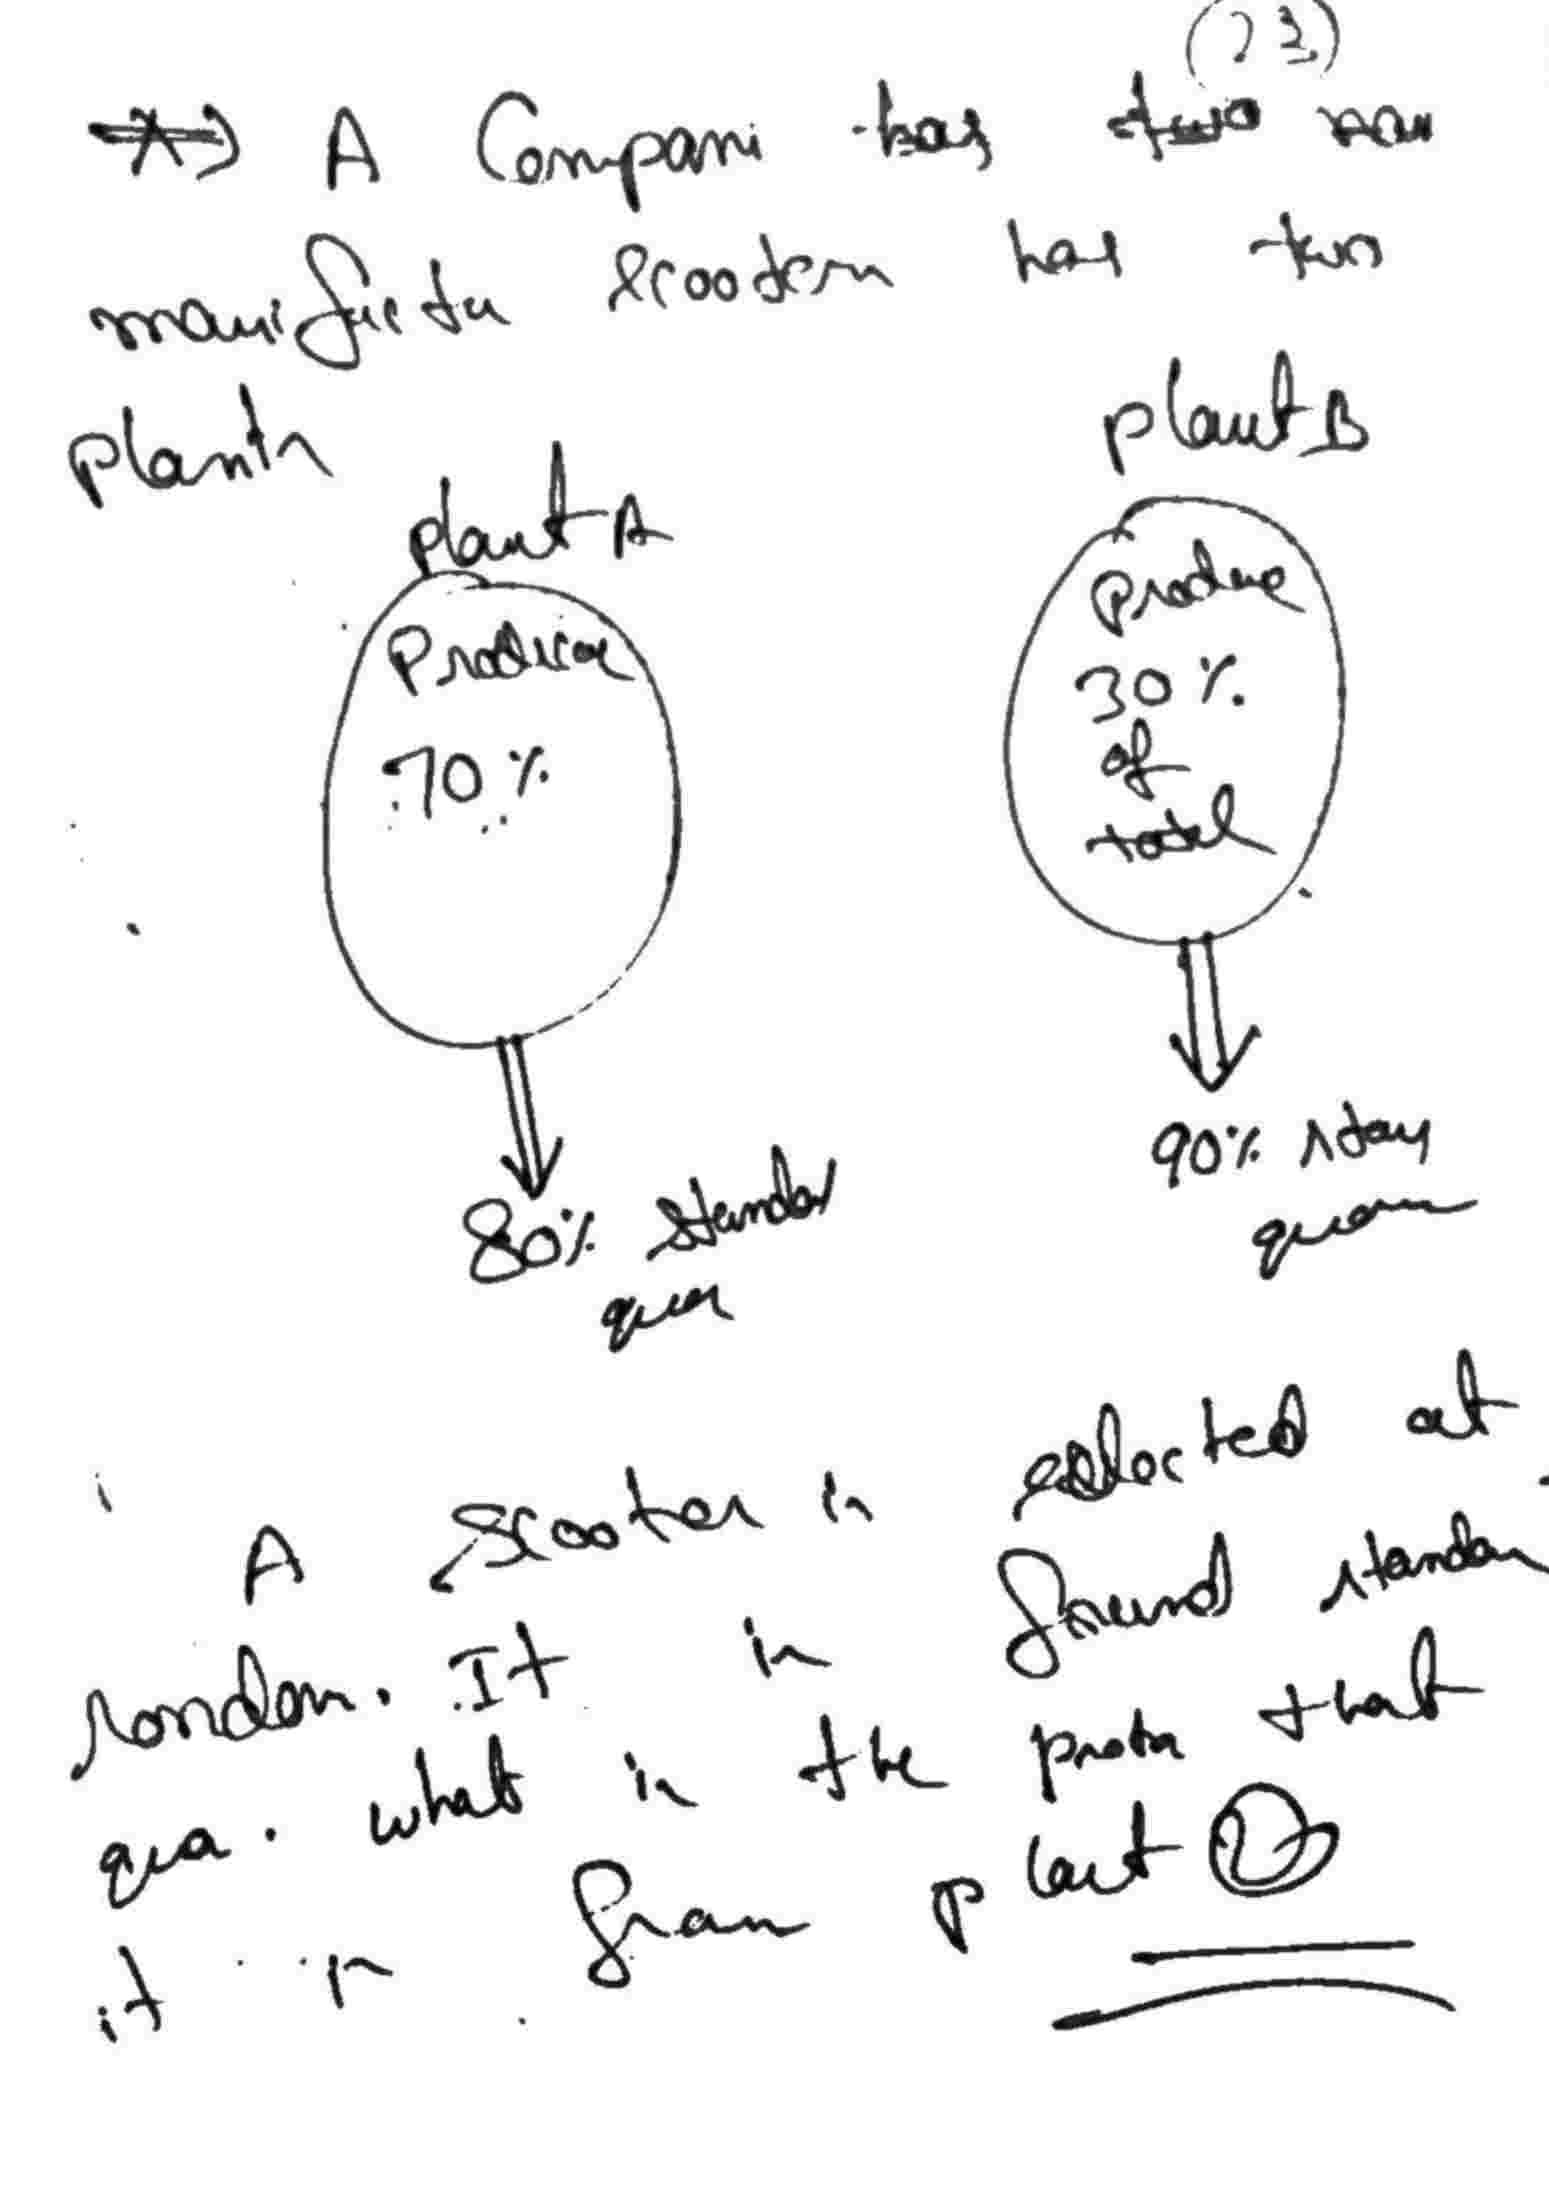 (23)
A Compani has two
manifactu scooters has two
plants
plant A
plant B
Produce
70 %
produce
30 %
of
total
80% standar
qua
90% stan
quan
A scooter is selected at
random. It is found standar
qua. what is the proba that
it is from plant